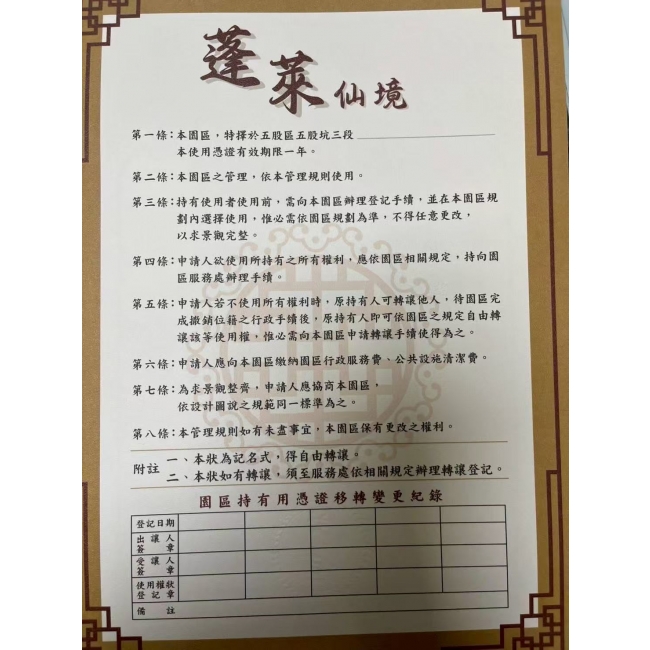 蓬萊仙境
第一條：本園區，特擇於五股區五股坑三段
本使用憑證有效期限一年。
第二條：本園區之管理，依本管理規則使用。
第三條：持有使用者使用前，需向本園區辦理登記手續，並在本園區規
劃內選擇使用，惟必需依園區規劃為準，不得任意更改，
以求景觀完整。
第四條：申請人欲使用所持有之所有權利，應依園區相關規定，持向園
區服務處辦理手續。
第五條：申請人若不使用所有權利時，原持有人可轉讓他人，待園區完
成撤銷位籍之行政手續後，原持有人即可依園區之規定自由轉
讓該等使用權，惟必需向本園區申請轉讓手續使得為之。
第六條：申請人應向本園區繳納園區行政服務費、公共設施清潔費。
第七條：為求景觀整齊，申請人應協商本園區，
依設計圖說之規範同一標準為之。
第八條：本管理規則如有未盡事宜，本園區保有更改之權利。
附註
一、本狀為記名式，得自由轉讓。
二、本狀如有轉讓，須至服務處依相關規定辦理轉讓登記。
園區持有用憑證移轉變更紀錄
登記日期
出讓人
簽章
受讓人
簽章
使用權狀
登記章
備註